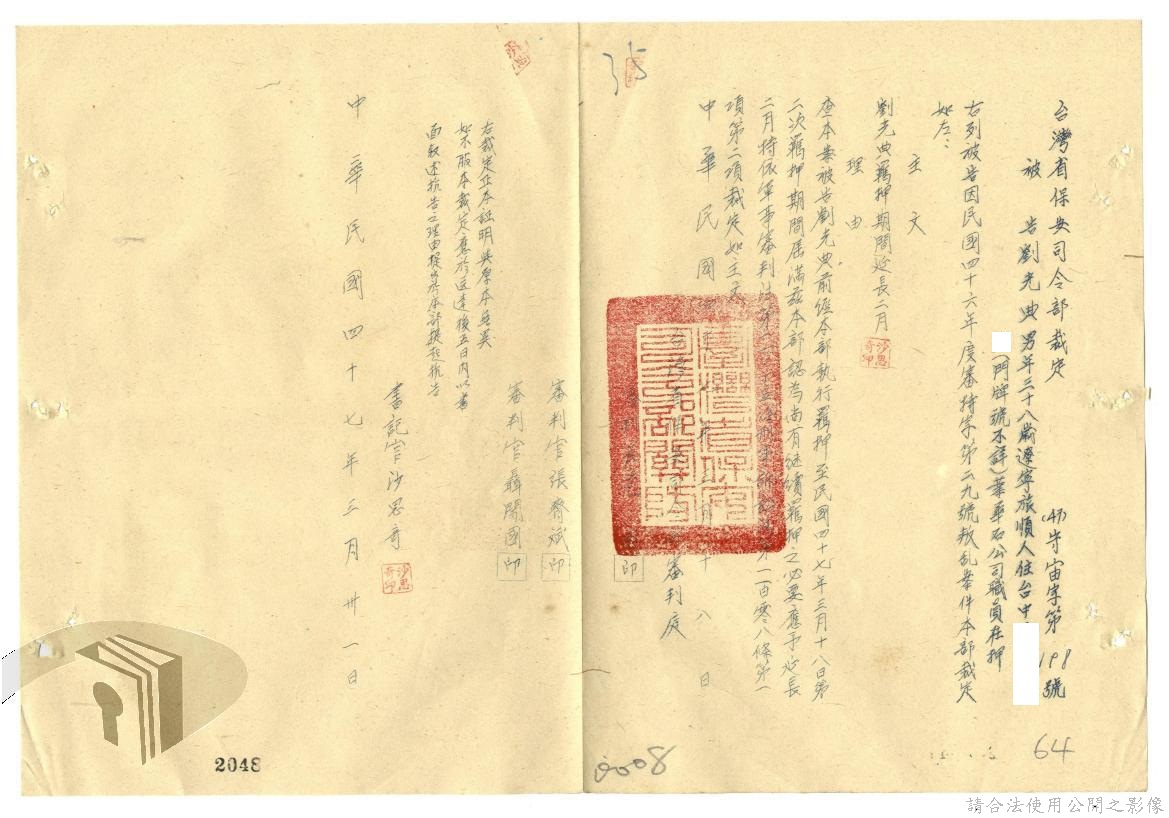 台灣省保安司令部裁定
(47)守宙字第198號
被告劉光典男年三十八歲遼寧旅順人住台中
(門牌號不詳)華石公司職員在押
右列被告因民國四十六年度審特字第二九號叛乱案件本部裁定
如左:
主文
劉光典羈押期間延長二月
沙思奇印
理由
查本案被告劉光典前經本部執行羈押至民國四十七年三月十八日第
二次羈押期間屆滿茲本部認為尚有継續羈押之必要應予延長
二月特依軍事審判法第 一百零八條第一
項第二項裁定如主文
中華民國 月十八日
審判庭
印
審判官張齊斌 印
審判官聶開國 印
右裁定正本証明與原本無異
如不服本裁定應於送達後五日內以書
面敘述抗告之理由提出於本部提起抗告
書記官沙思奇
沙思奇印
中華民國四十七年三月卅一日
2048
0008
64
請合法使用公開之影像